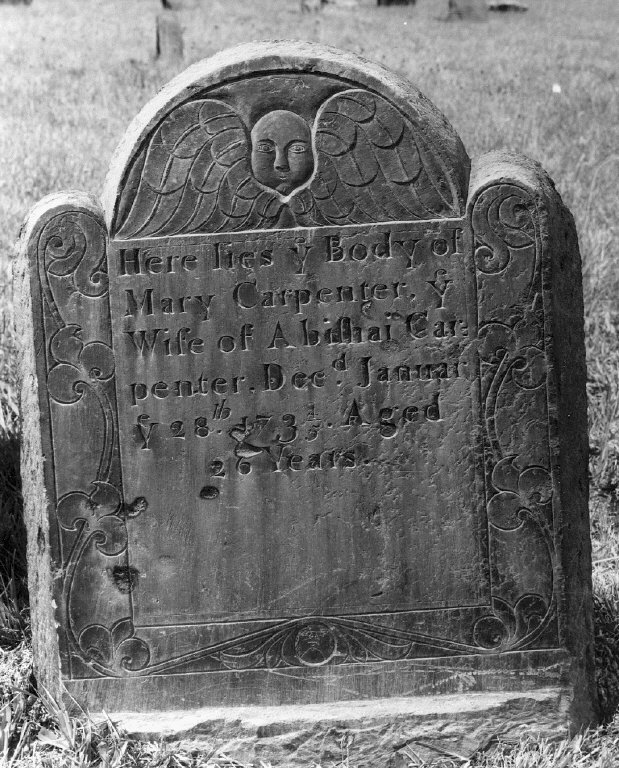 Here lies yͤ Body of
Mary Carpenter, yͤ
Wife of Abiſhai Car:
penter, Decᵈ. Januar
yͤ 28ᵗʰ. Aged
26 Years.